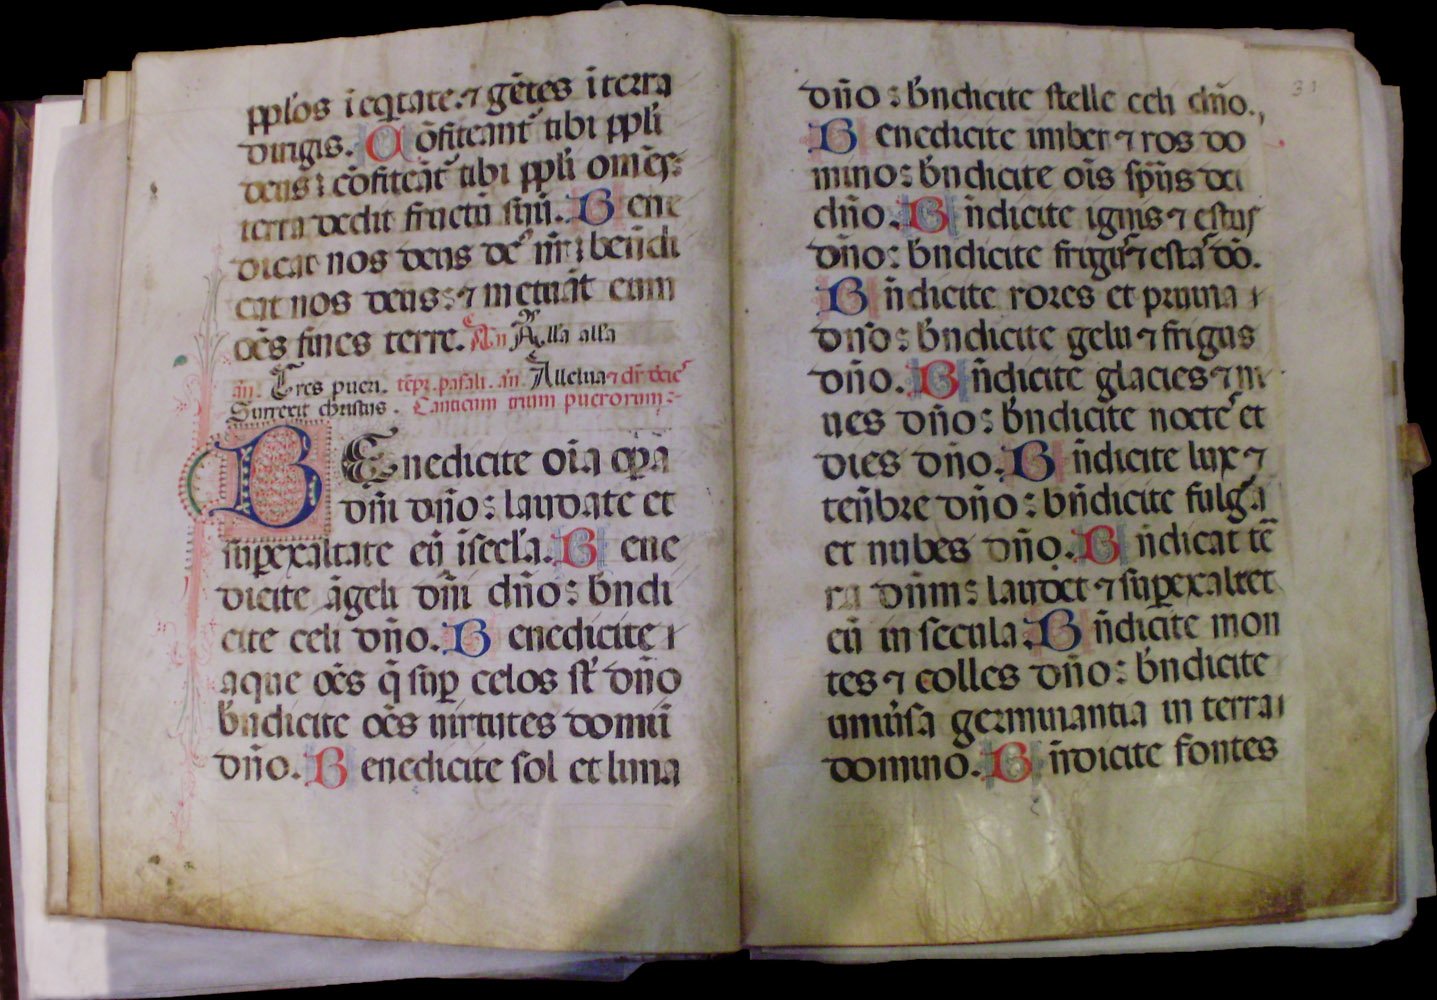 pplōs ī eq̄tate. ⁊ gētes ī terra
dirigis. Cōfiteant᷑ tibi ppl̄i
deus: cōfiteāt᷑ tibi ppl̄i om̄es:
terra dedit fructū suū. Bene
dicat nos deus de᷒ nr̄: ben̄di
cat nos deus: ⁊ metuāt eum
oēs fines terre. An̄ Alla alla
an̄. Tres pueri. tēpr̄. pascali. an̄. Alleluia ⁊ dr̄
Surrexit christus. Canticum trium puerorum:
BEnedicite oīa oꝑa
dn̄i dn̄o: laudate et
suꝑexaltate eū ī secl̄a. Bene
dicite āgeli dn̄i dn̄o: bn̄di
cite celi dn̄o. Benedicite
aque oēs q̄ suꝑ celos st̄ dn̄o
bn̄dicite oēs uirtutes domī
dn̄o. Benedicite sol et luna
dn̄o: bn̄dicite stelle celi dn̄o.
Benedicite imber ⁊ ros do
mino: bn̄dicite oīs sp̄us dei
dn̄o. Bn̄dicite ignis ⁊ estus
dn̄o: bn̄dicite frigus ⁊ esta᷒ dō.
Bn̄dicite rores et pruina
dn̄o: bn̄dicite gelu ⁊ frigus
dn̄o. Bn̄dicite glacies ⁊ ni
ues dn̄o: bn̄dicite nocte᷒ et
dies dn̄o. Bn̄dicite lux ⁊
ten̄bre dn̄o: bn̄dicite fulg᷑a
et nubes dn̄o. Bn̄dicat te᷑
ra dn̄m: laudet ⁊ suꝑexaltet
eū in secula. Bn̄dicite mon
tes ⁊ colles dn̄o: bn̄dicite
uniu᷑sa germinantia in terra
domino. Bn̄dicite fontes
31